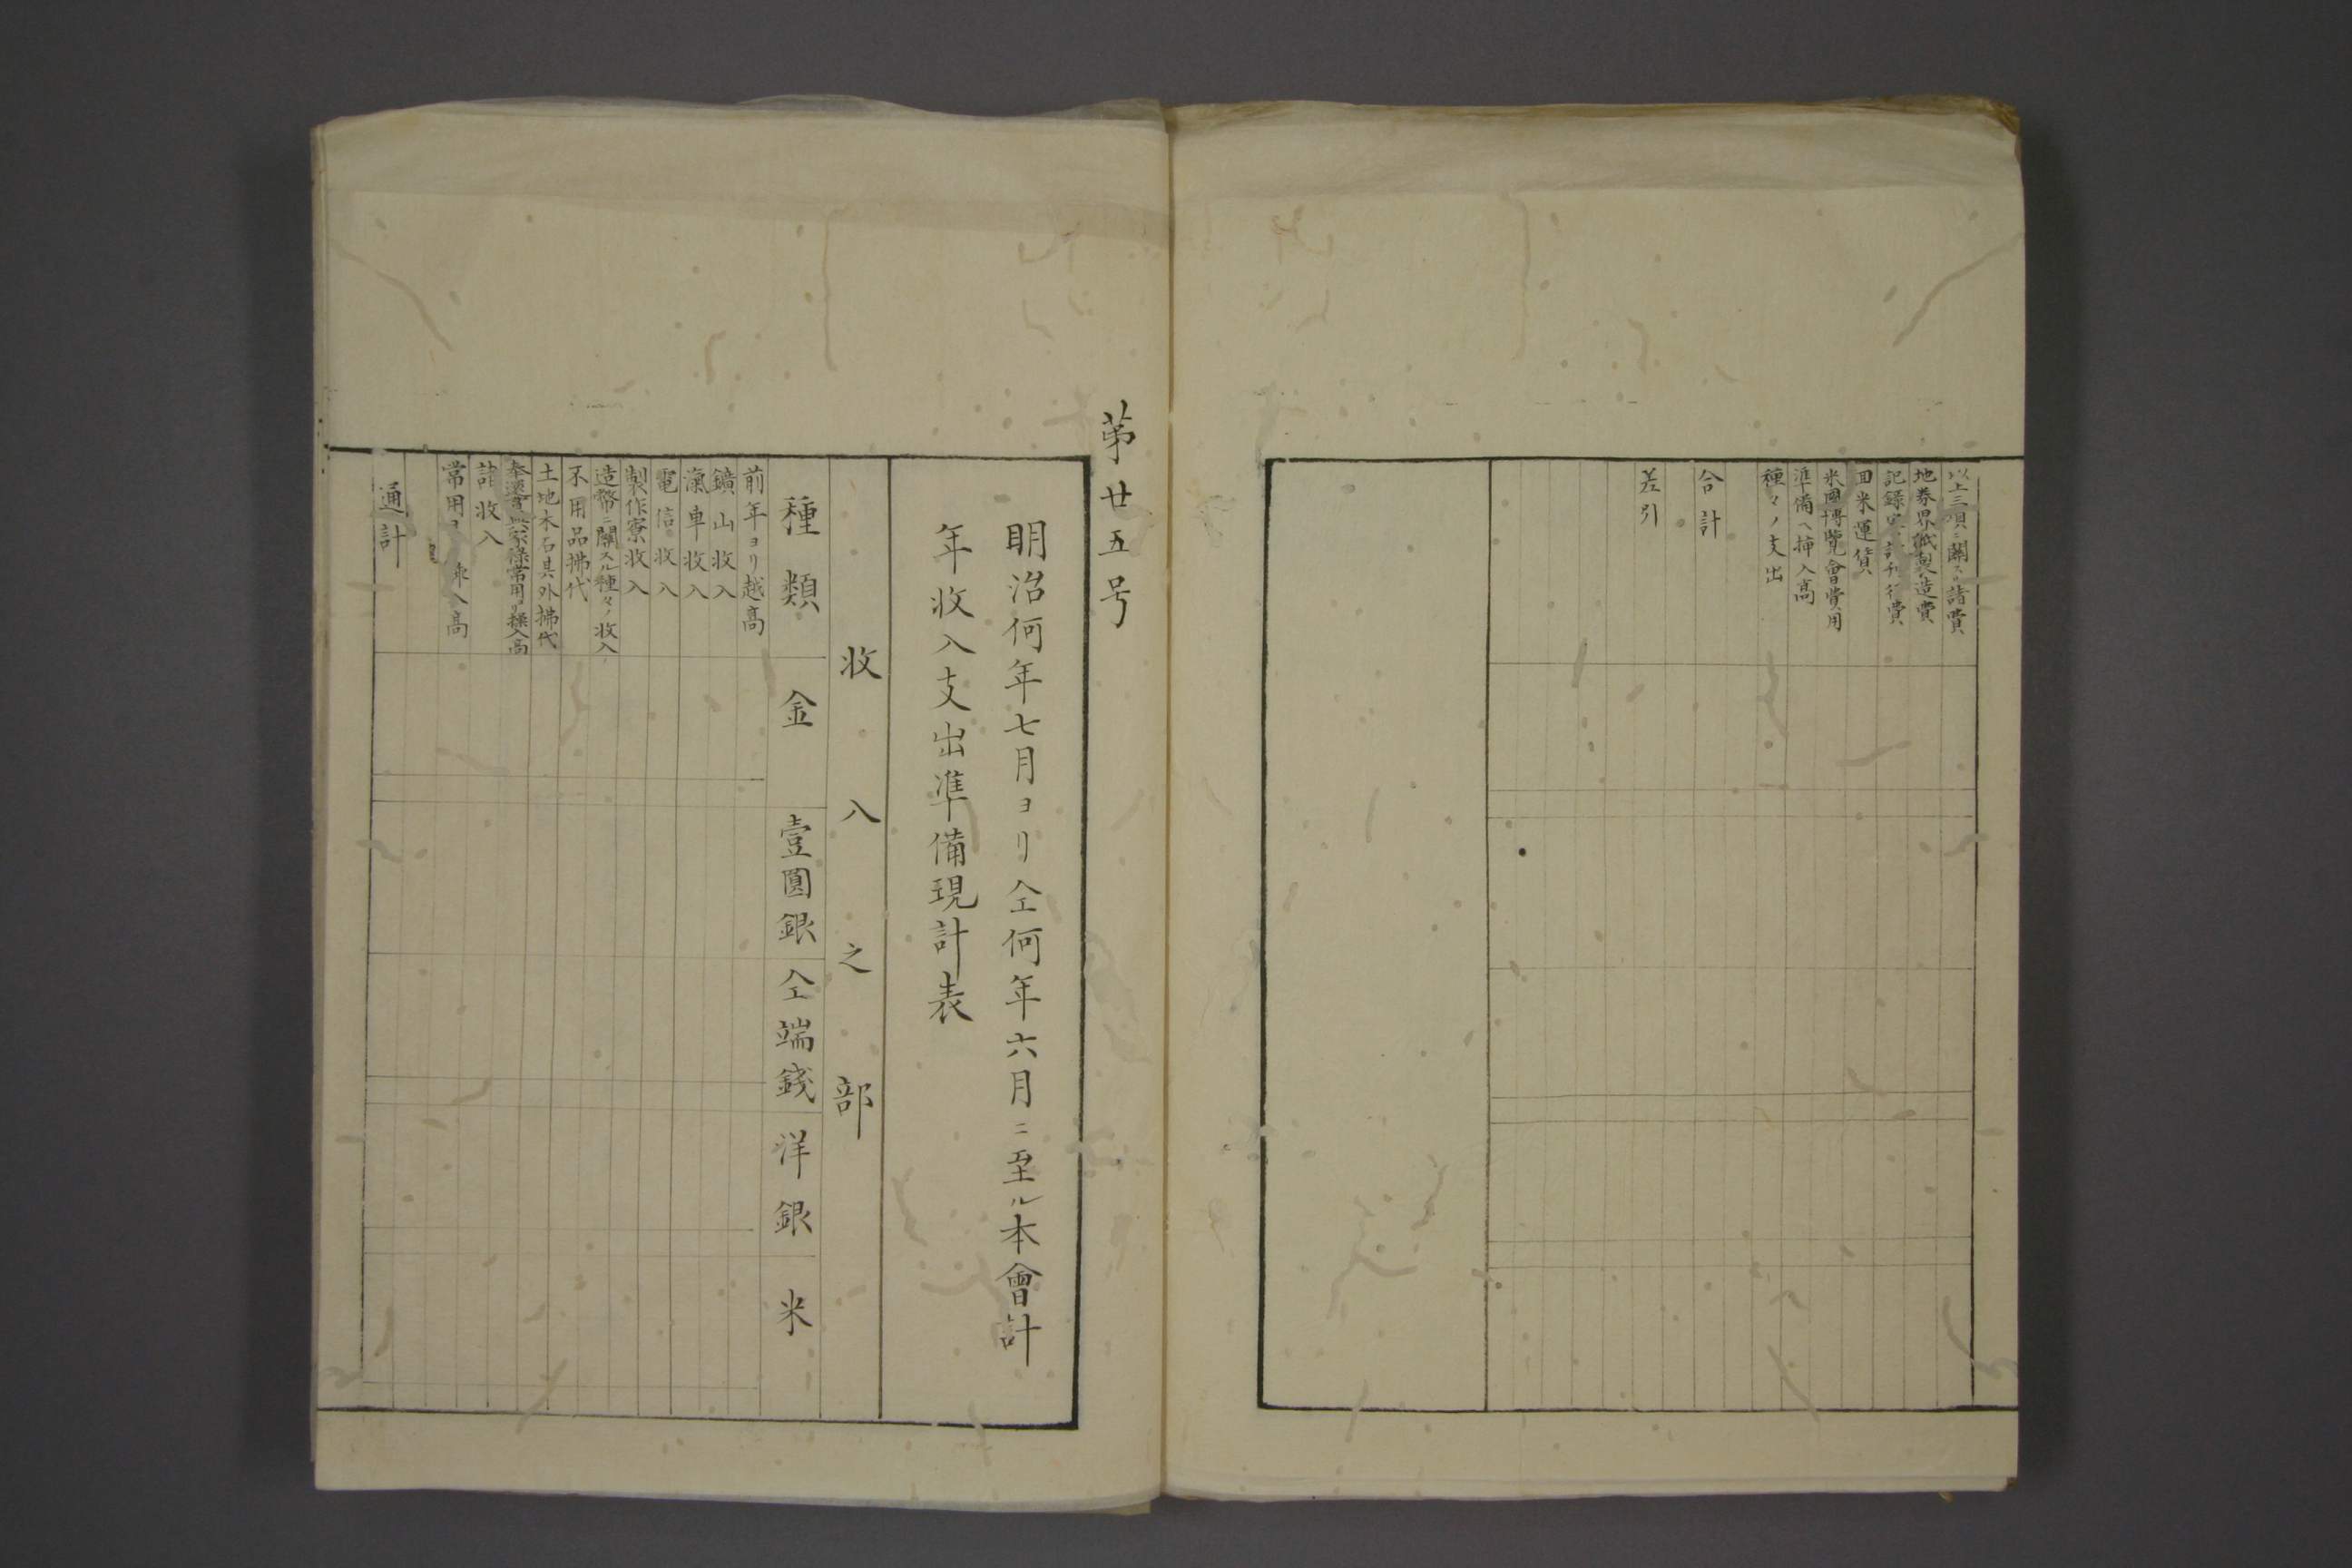 以上三項ニ關スル諸費
地券界紙製造費
記録
刊行費
回米運賃
米國博覽會費用
準備ヘ挿入高
種々ノ支出
合計
差引
苐廿五号
明治何年七月ヨリ仝何年六月ニ至ル本會計
年收入支出準備現計表
收入之部
種類 金 壹圓銀 仝端錢 洋銀 米
前年ヨリ越高
鑛山收入
滊車收入
電信收入
製作寮收入
造幣ニ關スル種々ノ收入
不用品拂代
土地木石其外拂代
奉還
家祿常用ヨリ操入高
諸收入
常用ヨ
入高
通計